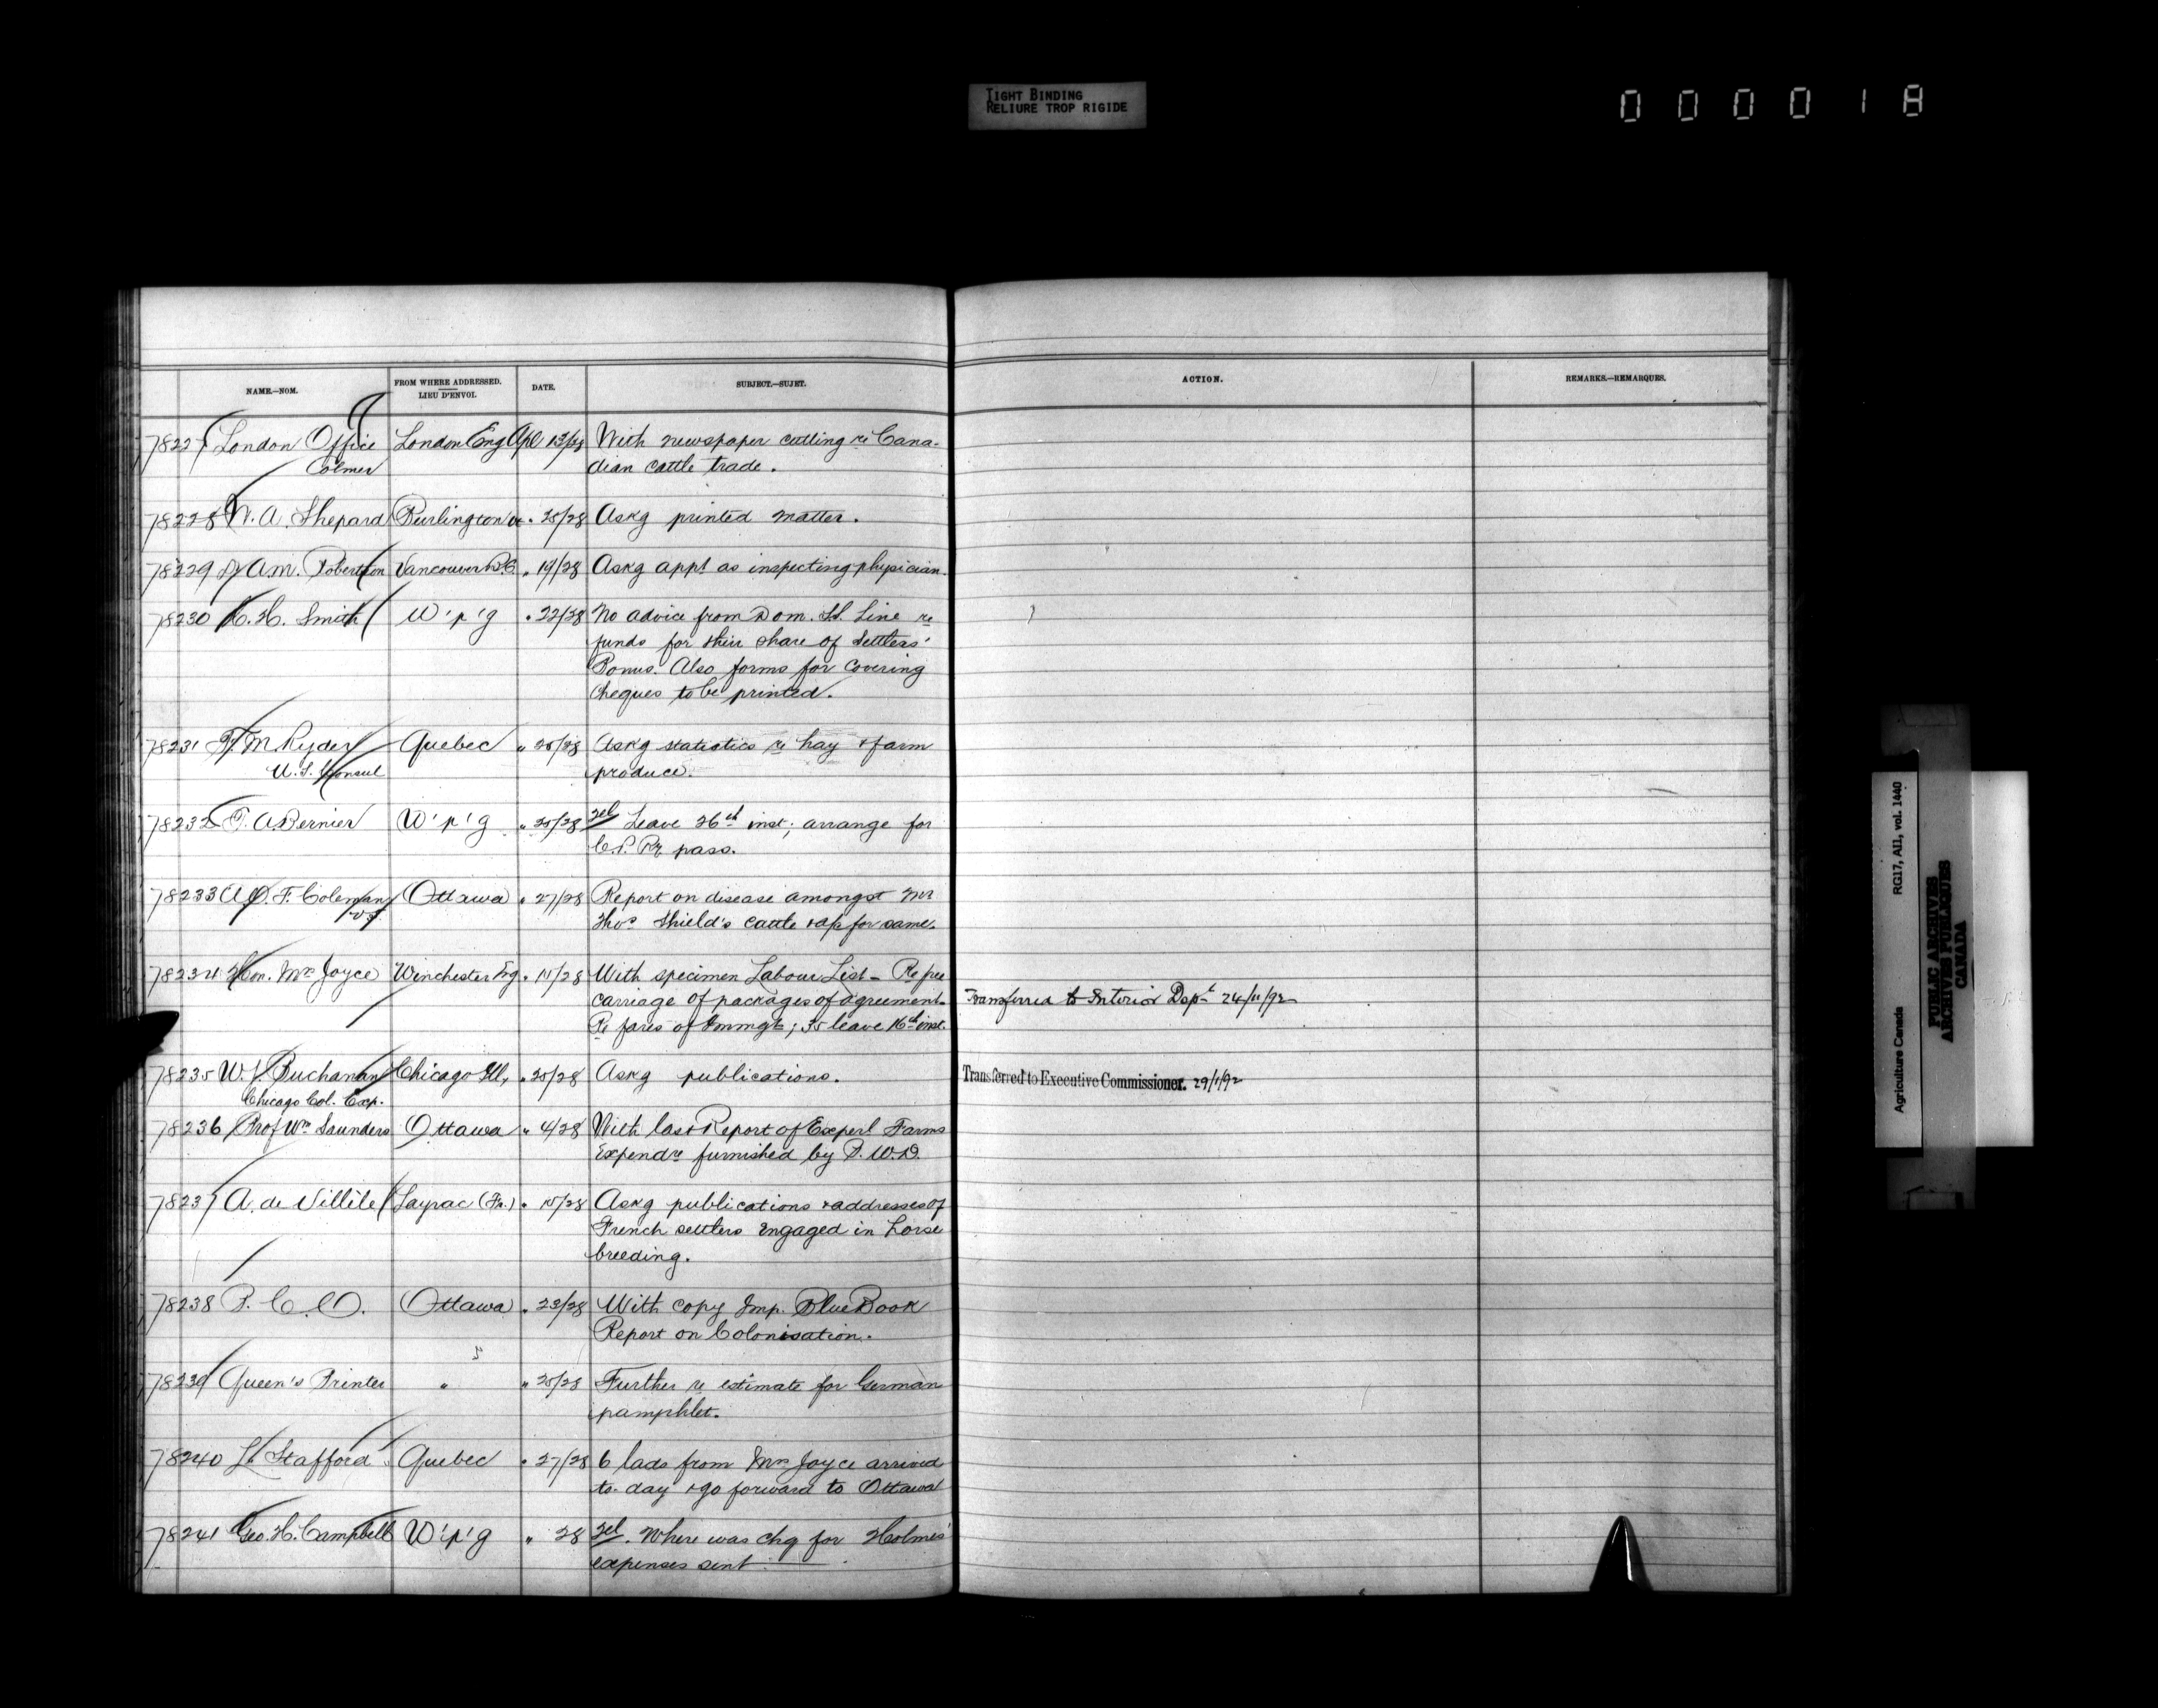 TIGHT BINDING
RELIURE TROP RIGIDE
000018
NAME.—NOM. FROM WHERE ADDRESSED. LIEU D'ENVOI. DATE. SUBJECT.—SUJET. ACTION. REMARKS.—REMARQUES.
78227 London Office London Eng Apl 13/28 With newspaper cutting re Cana-
Colmer dian cattle trade.
78228 W. A. Shepard Burlington Vt " 25/28 Askg printed matter.
78229 Dr A.M. Robertson Vancouver B.C. " 19/28 Askg appt as inspecting physician.
78230 H. Smith W'p'g " 22/28 No advice from Dom. SS. Line re
funds for their share of Settlers'
Bonus. Also forms for covering
cheques to be printed.
78231 M Ryder Quebec " 28 Askg statistics re hay & farm
U.S. Consul produce.
78232 T. A. Bernier W'p'g " 25/28 Tel Leave 26th inst; arrange for
C.P. Ry pass.
78233 F. Coleman Ottawa " 27/28 Report on disease amongst Mr
V.S. Thos Shield's cattle & a/c for same.
78234 Hon. Mrs Joyce Winchester Eng " 28 With specimen Labour List - Re free
carriage of packages of agreement. Transferred to Interior Dept 24/11/92
Re fares of Immgts; 35 leave 16th inst.
78235 W. Buchanan Chicago Ill, " 25/28 Askg publications. Transferred to Executive Commissioner. 29/1/92
Chicago Col. Exp.
78236 Prof Wm Saunders Ottawa " 4/28 With last Report of Experl Farms
Expendre furnished by P.W.D.
78237 A. de Villèle Layrac (Fr.) " 15/28 Askg publications & addresses of
French settlers engaged in horse
breeding.
78238 P. C. O. Ottawa " 23/28 With copy Imp. Blue Book
Report on Colonisation.
78239 Queen's Printer " " 25/28 Further re estimate for German
pamphlet.
78240 L. Stafford Quebec " 27/28 6 lads from Mrs Joyce arrived
to-day & go forward to Ottawa
78241 Geo. H. Campbell W'p'g " 28 Tel. Where was chq for Holmes'
expenses sent
Agriculture Canada RG17, AII, vol. 1440
PUBLIC ARCHIVES
ARCHIVES PUBLIQUES
CANADA